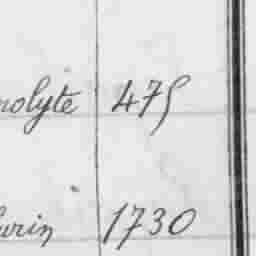 nolyte 475
urin 1730